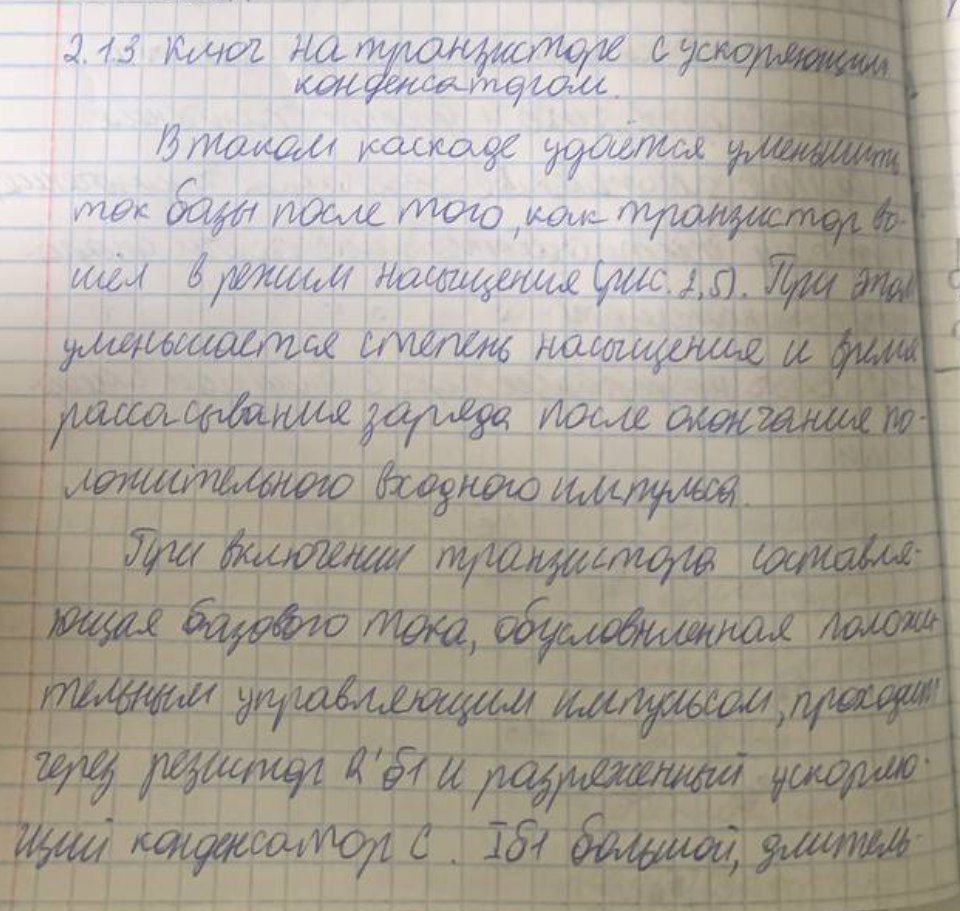 2.1.3 Ключ на транзисторе с ускоряющим
конденсатором.
В таком каскаде удаётся уменьшить
ток базы после того, как транзистор во-
шёл в режим насыщения (рис. 2,5). При этом
уменьшается степень насыщения и время
рассасывания заряда после окончания по-
ложительного входного импульса.
При включении транзистора составля-
ющая базового тока, обусловленная положи
тельным управляющим импульсом, проходит
через резистор R'б1 и разряженный ускоряю-
щий конденсатор С. Iб1 большой, длитель-